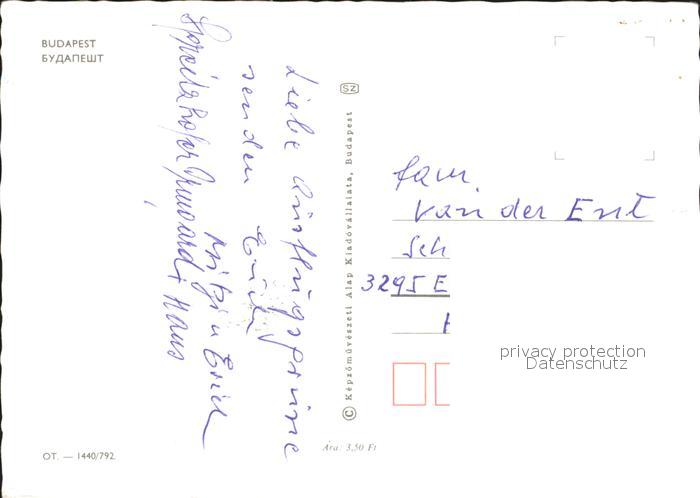 BUDAPEST
БУДАПЕШТ
Liebe Ausflugsgrüsse
senden
Mitzi u Erich
Irmgard + Hans
SZ
© Képzőművészeti Alap Kiadóvállalata, Budapest
Fam.
Van der Ent
Sch
3295 E
privacy protection
Datenschutz
OT. — 1440/792.
Ára: 3,50 Ft